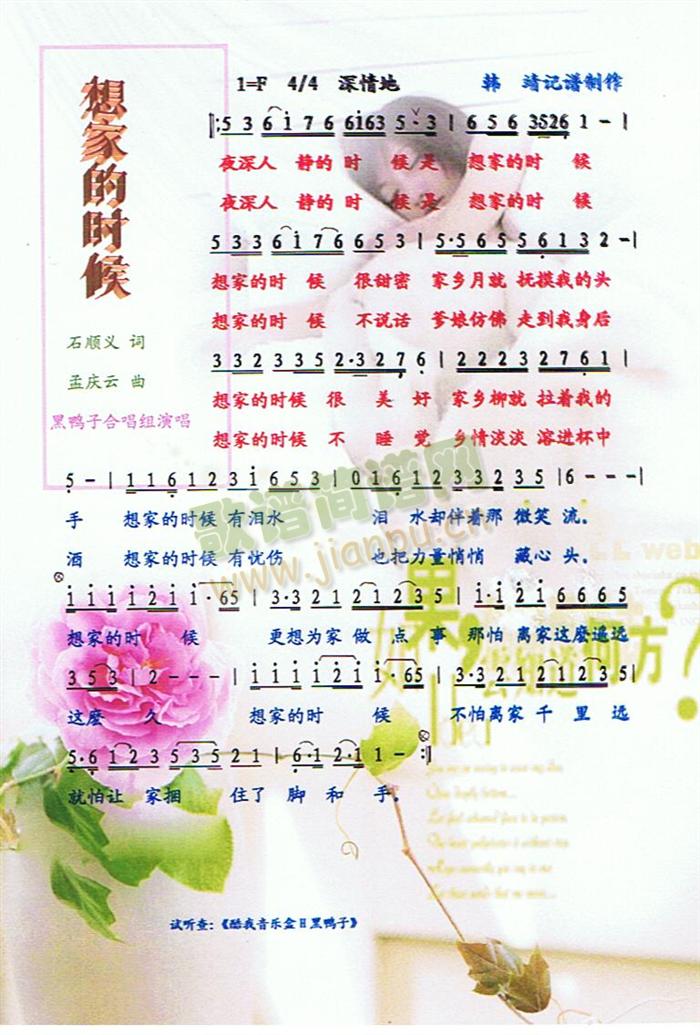 想家的时候
石顺义 词
孟庆云 曲
黑鸭子合唱组演唱
1=F 4/4 深情地 韩 靖记谱制作
5 3 6 i 7 6 6i63 5·3 | 6 5 6 3526 1 - |
夜深人 静的 时 候是 想家的时 候
夜深人 静的 时 候是 想家的时 候
5 3 3 6 i 7 6 6 5 3 | 5·5 6 5 5 6 1 3 2 - |
想家的时 候 很甜密 家乡月就 抚摸我的头
想家的时 候 不说话 爹娘仿佛 走到我身后
3 3 2 3 3 5 2·3 2 7 6 | 2 2 2 3 2 2 7 6 1 |
想家的时候 很 美 好 家乡柳就 拉着我的
想家的时候 不 睡 觉 乡情淡淡 溶进杯中
5 - | 1 1 6 1 2 3 i 6 5 3 | 0 1 6 1 2 3 3 2 3 5 | 6 - - - |
手 想家的时候 有泪水 泪 水却伴着那 微笑 流。
酒 想家的时候 有忧伤 也把力量悄悄 藏心 头。
i i i i 2 i i·65 | 3·3 2 1 2 1 2 3 5 | i·i 2 i 6 6 6 5 |
想家的时 候 更想为家 做 点 事 那怕 离家这麽遥远
3 5 3 | i i i i 2 i i·65 | 3 3 2 1 2 1 2 3 5 |
这麽 久 想家的时 候 不怕离家 千 里 远
5·6 1 2 3 5 3 5 2 1 | 6·1 2·1 1 - :|
就怕让 家捆 住了 脚 和 手。
试听查：《酷我音乐盒日黑鸭子》
歌谱简谱网
www.jianpu.cn